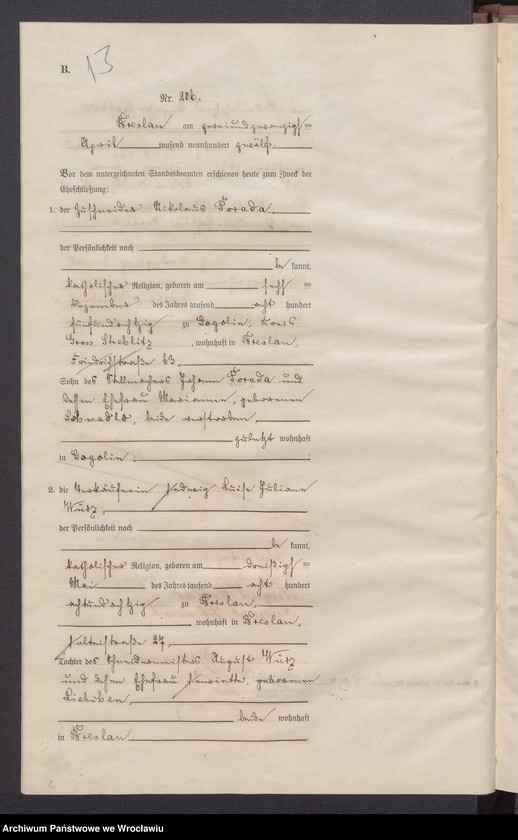 B. 13
Nr. 226.
Breslau am zweiundzwanzigsten
April tausend neunhundert zwölf
Vor dem unterzeichneten Standesbeamten erschienen heute zum Zweck der
Eheschließung:
1. der Zuschneider Nikolaus Porada,
der Persönlichkeit nach
be kannt,
katholischer Religion, geboren am sechsten
Dezember des Jahres tausend acht hundert
fünfundachtzig zu Gogolin, Kreis
Gross Strehlitz, wohnhaft in Breslau,
Friedrichstraße 63,
Sohn des Stellmachers Johann Porada und
dessen Ehefrau Marianne, geborenen
beide verstorben,
zuletzt wohnhaft
in Gogolin.
2. die Verkäuferin Hedwig Luise Juliane
Wurz,
der Persönlichkeit nach
be kannt,
katholischer Religion, geboren am dreißigsten
Mai des Jahres tausend acht hundert
achtundachtzig zu Breslau,
wohnhaft in Breslau,
Holteistraße 27,
Tochter des Schneidermeisters August Wurz
und dessen Ehefrau Henriette, geborenen
beide wohnhaft
in Breslau
Archiwum Państwowe we Wrocławiu